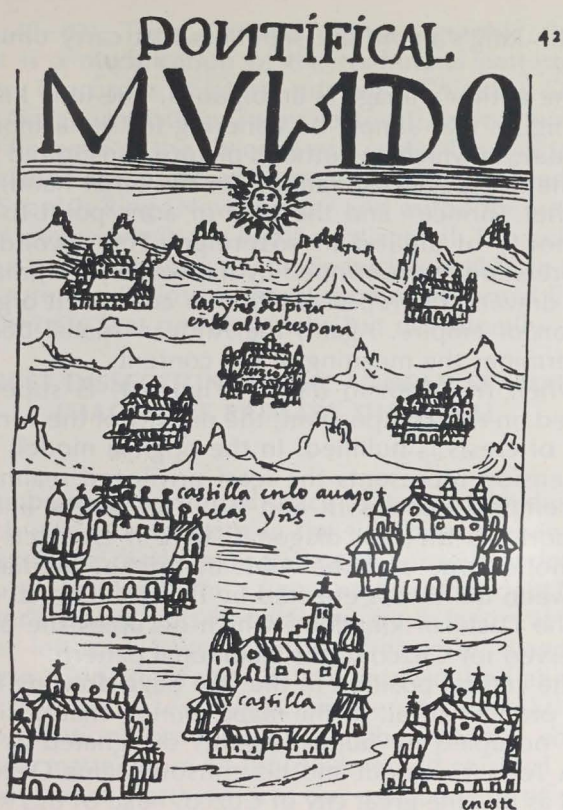 PONTIFICAL
MVNDO
42
las yn̄s del piru
en lo alto de espana
cuzco
castilla en lo auajo
de las yn̄s
castilla
en este